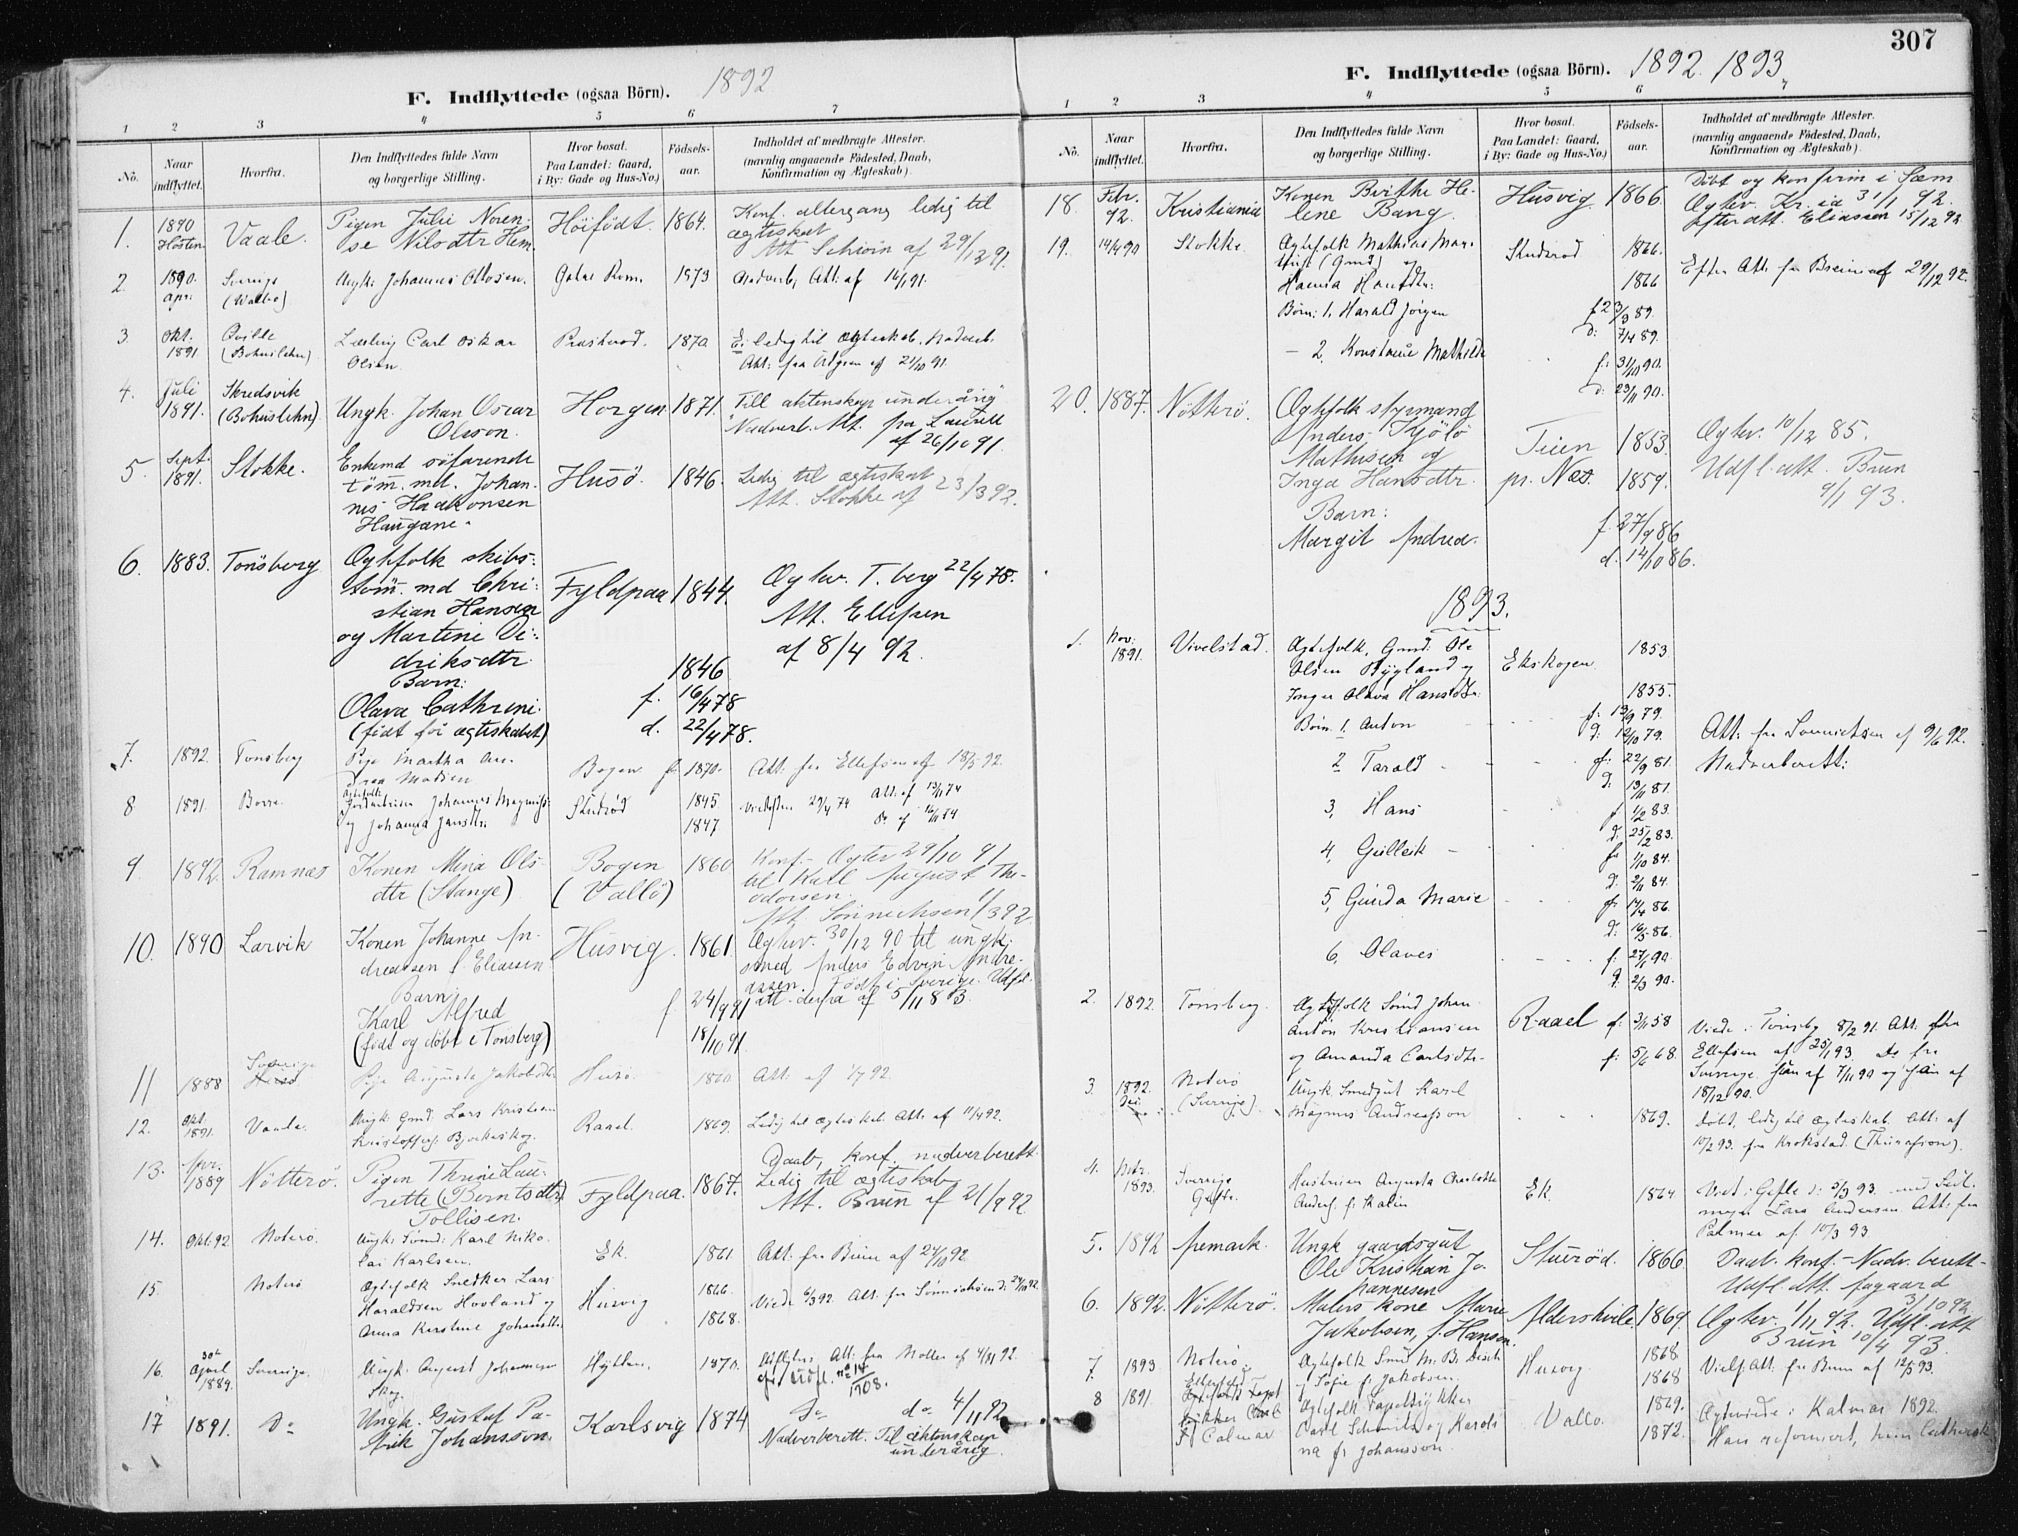 F. Indflyttede (ogsaa Börn). 1892
1 2 3 4 5 6 7
No. Naar indflyttet. Hvorfra. Den Indflyttedes fulde Navn og borgerlige Stilling. Hvor bosat. Paa Landet: Gaard, i By: Gade og Hus-No.) Födsels-aar. Indholdet af medbragte Attester. (navnlig angaaende Födested, Daab, Konfirmation og Ægteskab).
1. 1890 Høsten Vaale. Pigen Julie Noren- Höifödt. 1864. Konf. altergang ledig til
se Nilsdtr Hem. ægteskab
Att. Schiörn af 29/12 91.
2 1890. Apr. Sverige Ungk. Johannes Ottosen. 1873 Nadverb, Att. af 14/1 91.
3. Okt. 1891. Qville (Bohuslehn) Carl Oskar Olsen Præsterød. 1870. Ei ledig til Ægteskab, Nadverb.
Att. fra af 21/10 91.
4. Juli 1891. Skredsvik (Bohuslehn) Ungk. Johan Oscar Horgen 1871. Till äktenskap underårig
Olsson. Nadverb. Att. fra Laurell
af 26/10 91
5. Sept. 1891. Stokke. Enkemd söfarende Husö. 1846. Ledig til ægteskab
töm. md. Johan- Att. Stokke af 23/3 92.
nis Haakonsen
Haugane.
6. 1883. Tönsberg Ægtefolk skibs- Fyldpaa 1844. Ægtev. T.berg 22/4 78.
töm. md Chri- Att. Ellefsen
stian Hansen af 8/4 92.
og Martine Di-
driksdtr. 1846
Barn:
Olava Cathrine f. 16/4 78
(födt för ægteskabet) d. 22/4 78.
7. 1892. Tonsberg Pige Martha An- Bogen f. 1870. Att. fra Ellefsen af 18/5 92.
drea Madsen
8 1891. Borre. Johannes Magnus Skuerød 1845 viede 29/4 74 Att. af 13/11 74
og Johanna Jansdtr. 1847 Do af
9. 1892. Ramnæs Konen Mina Ols- Bogen 1860 Konf. - Ægtev 29/10 91
dtr (Stange) (Vallö) til Karl August The-
odorsen.
Att. Sönnichsen 1/3 92
10. 1890 Larvik Konen Johanne An- Husvig. 1861 Ægtev. 30/12 90 til ungk.
dreassen f. Eliassen smed Anders Edvin Andre-
Barn: assen. Födt i Sverige. Udfl.
Karl Alfred f 24/9 91 att. derfra af 5/11 83.
(födt og döbt i Tonsberg) 18/10 91.
11 1888 Sverige Pige Augusta Jakobsdtr. Husö. 1860 Att. af 1/7 92.
12. Okt. 1891. Vaale. Ungk. Gmd. Lars Kristian Raael. 1869. Ledig til Ægteskab. Att. af 11/4 92.
Kristoffers. Bjerkeskog.
13. Apr. 1889 Nötterö. Pigen Thrine Lau- Fyldpaa. 1867. Daab, konf. nadverberett.
rette (Berntsdtr) Ledig til ægteskab
Tollisen. Att. Bruun af 21/9 92
14. Okt. 92 Noterö. Ungk. Sömd. Karl Niko- Ek. 1861 Att. fra Bruun af 24/10 92.
lai Karlsen.
15. Noterö Ægtefolk Snedker Lars Husvig 1866. Viede 6/3 92. Att. fra Sönnichsen d: 24/10 92.
Haraldsen Hovland og 1868.
Anna Kirstine Johansdtr.
16. 30te April 1889. Sverige. Ungk. August Johannesen Skog. 1870. Udflytn. Att. fra af 4/11 92.
Udfl. No 14 1908.
17 1891. Do Ungk. Gustaf Pa- Karlsvig 1874 Do do 4/11 92
trik Johansson. Nadverberett. Til äktenskap
underårig.
307
F. Indflyttede (ogsaa Börn). 1892. 1893
1 2 3 4 5 6 7
No. Naar indflyttet. Hvorfra. Den Indflyttedes fulde Navn og borgerlige Stilling. Hvor bosat. Paa Landet: Gaard, i By: Gade og Hus-No.) Födsels-aar. Indholdet af medbragte Attester. (navnlig angaaende Födested, Daab, Konfirmation og Ægteskab).
18. Febr. 92. Kristiania Konen Berthe He- Husvig. 1866. Döbt og konfirm i Sæm
lene Bang. Ægtev. Kr.ia 31/1 92.
efter att. Eliassen 15/12 92
19. 14/4 90 Stokke. Ægtefolk Mathias Mar- Skuerød 1866. Efter Att. fra af 29/12 92.
(Gmd) og 1866
Hansdtr:
Börn: 1. Harald Jörgen f 23/3 89.
D: 7/4 89.
2. Konstance Mathilde f: 31/10 90.
D: 23/11 90.
20. 1887. Nötterö. Ægtefolk styrmand Ægtev. 10/12 85.
Anders Kjölö Teien 1853. Udfl. att. Bruun
Mathisen og 9/1 93.
Inga Hansdtr. pr. Næs. 1859.
Barn:
Margit Andrea. f. 27/9 86
d. 14/10 86.
1893.
1. Nov. 1891. Vivelstad. Ægtefolk, Gmd. Ole Ekskogen. 1853.
Olsen Bygland og
Inger Olava Hansdtr. 1855.
Börn. 1. Anton f: 13/9 79. Att. fra Sönnichsen af 9/6 92.
D: 12/10 79. Nadverberett:
2 Tarald f: 22/9 81.
D: 13/11 81.
3, Hans f 1/2 83.
D: 25/2 83.
4, Gulleik f. 1/10 84.
D: 2/11 84.
5, Gunda Marie f. 14/4 86.
D: 16/5 86.
6, Olaves f: 27/1 90.
D: 2/3 90.
2. 1892. Tonsberg. Ægtefolk Sömd Johan Raael f. 3/11 58 Viede i Tönsbg 8/2 91. Att. fra
Anton Kristiansen Ellefsen af 25/1 93. Do fra
og Amanda Carlsdtr. f: 5/6 68. Sverige. Han af 7/11 90 og hun af
18/12 90.
3 1892. Noterö (Sverige). Ungk. Smedgut Karl 1869. Döbt, ledig til Ægteskab. Att. af
Magnus Andreasson 10/2 93. fra Krokstad.
4. 1893. Sverige Gefle. Hustruen Augusta Charlotte Ek. 1864. Viet i Gefle d: 5/3 93. med
Anders. f: Kalin Lars Andersen. Att. fra
Palmer af 10/3 93
5. 1892 Aremark. Ungk gaardsgut Stuerød. 1866 Daab. konf. - Nadv. berett -
Ole Kristian Jo- Udfl. Att. Aagaard
hannesen 3/10 92
6. 1892. Nötterö. Malers kone Marie Aldershvile. 1869. Ægtev. 1/11 92. Udfl. att
Jakobsen, f. Hansen. Bruun 10/4 93.
7. 1893 Noterö Ægtefolk Smd M. B. Husvig 1868 Viel. Att. fra Bruun af 12/5 93.
Sofie f. Jakobsen. 1868
8 1891. Calmar Ægtefolk Tapetsykker Vallö. 1829. Ægteviede i Kalmar 1892.
Carl Schmitz og Karoli- 1872. Han reformert, hun luthersk
na f. Johansson.